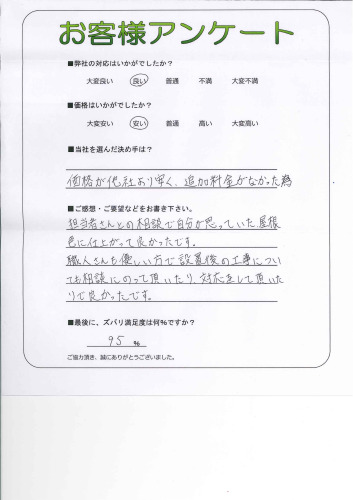 お客様アンケート
■弊社の対応はいかがでしたか？
大変良い 良い 普通 不満 大変不満
■価格はいかがでしたか？
大変安い 安い 普通 高い 大変高い
■当社を選んだ決め手は？
価格が他社より安く、追加料金がなかった為
■ご感想・ご要望などをお書き下さい。
担当者さんとの相談で自分が思っていた屋根
色に仕上がって良かったです。
職人さんも優しい方で設置後の工事につい
ても相談にのって頂いたり、対応をして頂いた
りで良かったです。
■最後に、ズバリ満足度は何%ですか？
95 %
ご協力頂き、誠にありがとうございました。